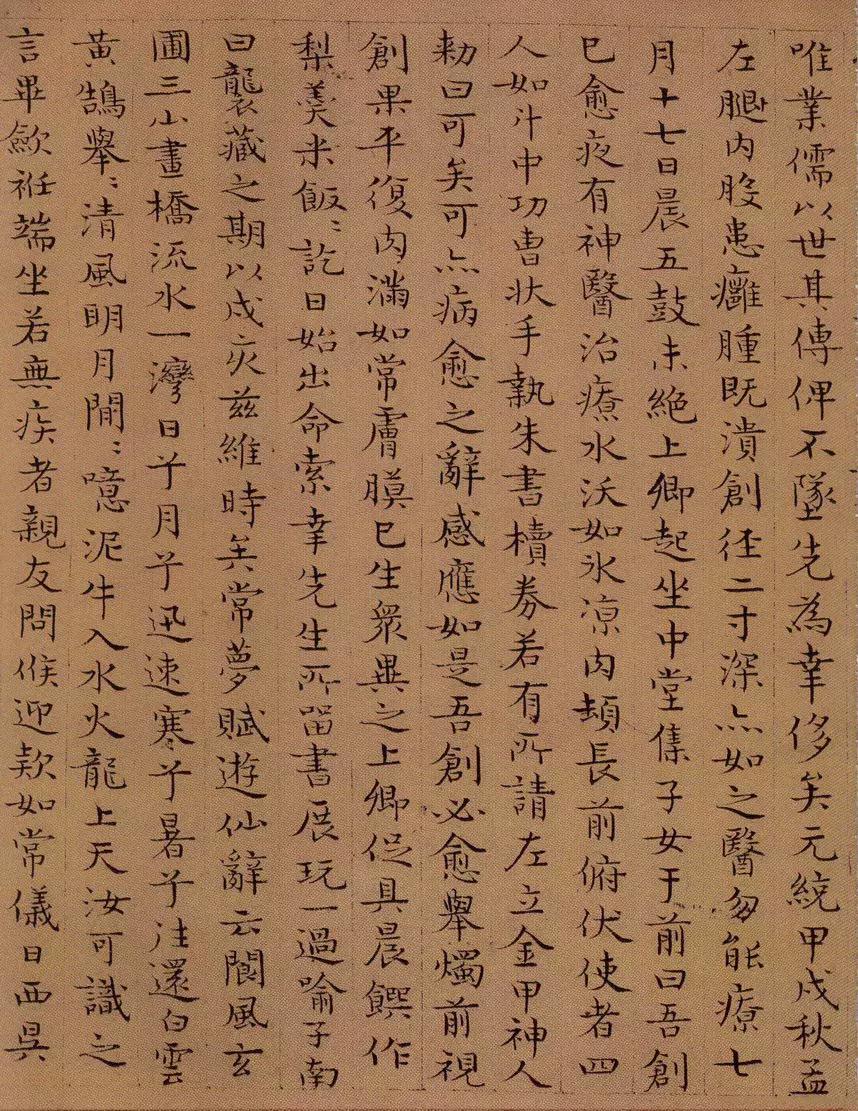 唯業儒以世其傳俾不墜先為幸侈矣元統甲戌秋孟
左腿内股患癰腫既潰創徑二寸深亦如之醫匆能療七
月十七日晨五鼓未絕上卿起坐中堂集子女于前曰吾創
已愈夜有神醫治療水沃如氷凉肉頓長前俯伏使者四
人如斗中功曹狀手執朱書櫝券若有所請左立金甲神人
勑曰可矣可亦病愈之辭感應如是吾創必愈舉燭前視
創果平復肉滿如常膚膜已生衆異之上卿促具晨饌作
梨羹米飯〻訖日始出命索幸先生所留書展玩一過喻子南
曰襲藏之期以戌亥兹維時矣常夢賦遊仙辭云閬風玄
圃三山畫橋流水一灣日兮月兮迅速寒兮暑兮注還白雲
黃鵠舉〻清風明月閒〻噫泥牛入水火龍上天汝可識之
言畢歛袵端坐若無疾者親友問候迎欵如常儀日西昃